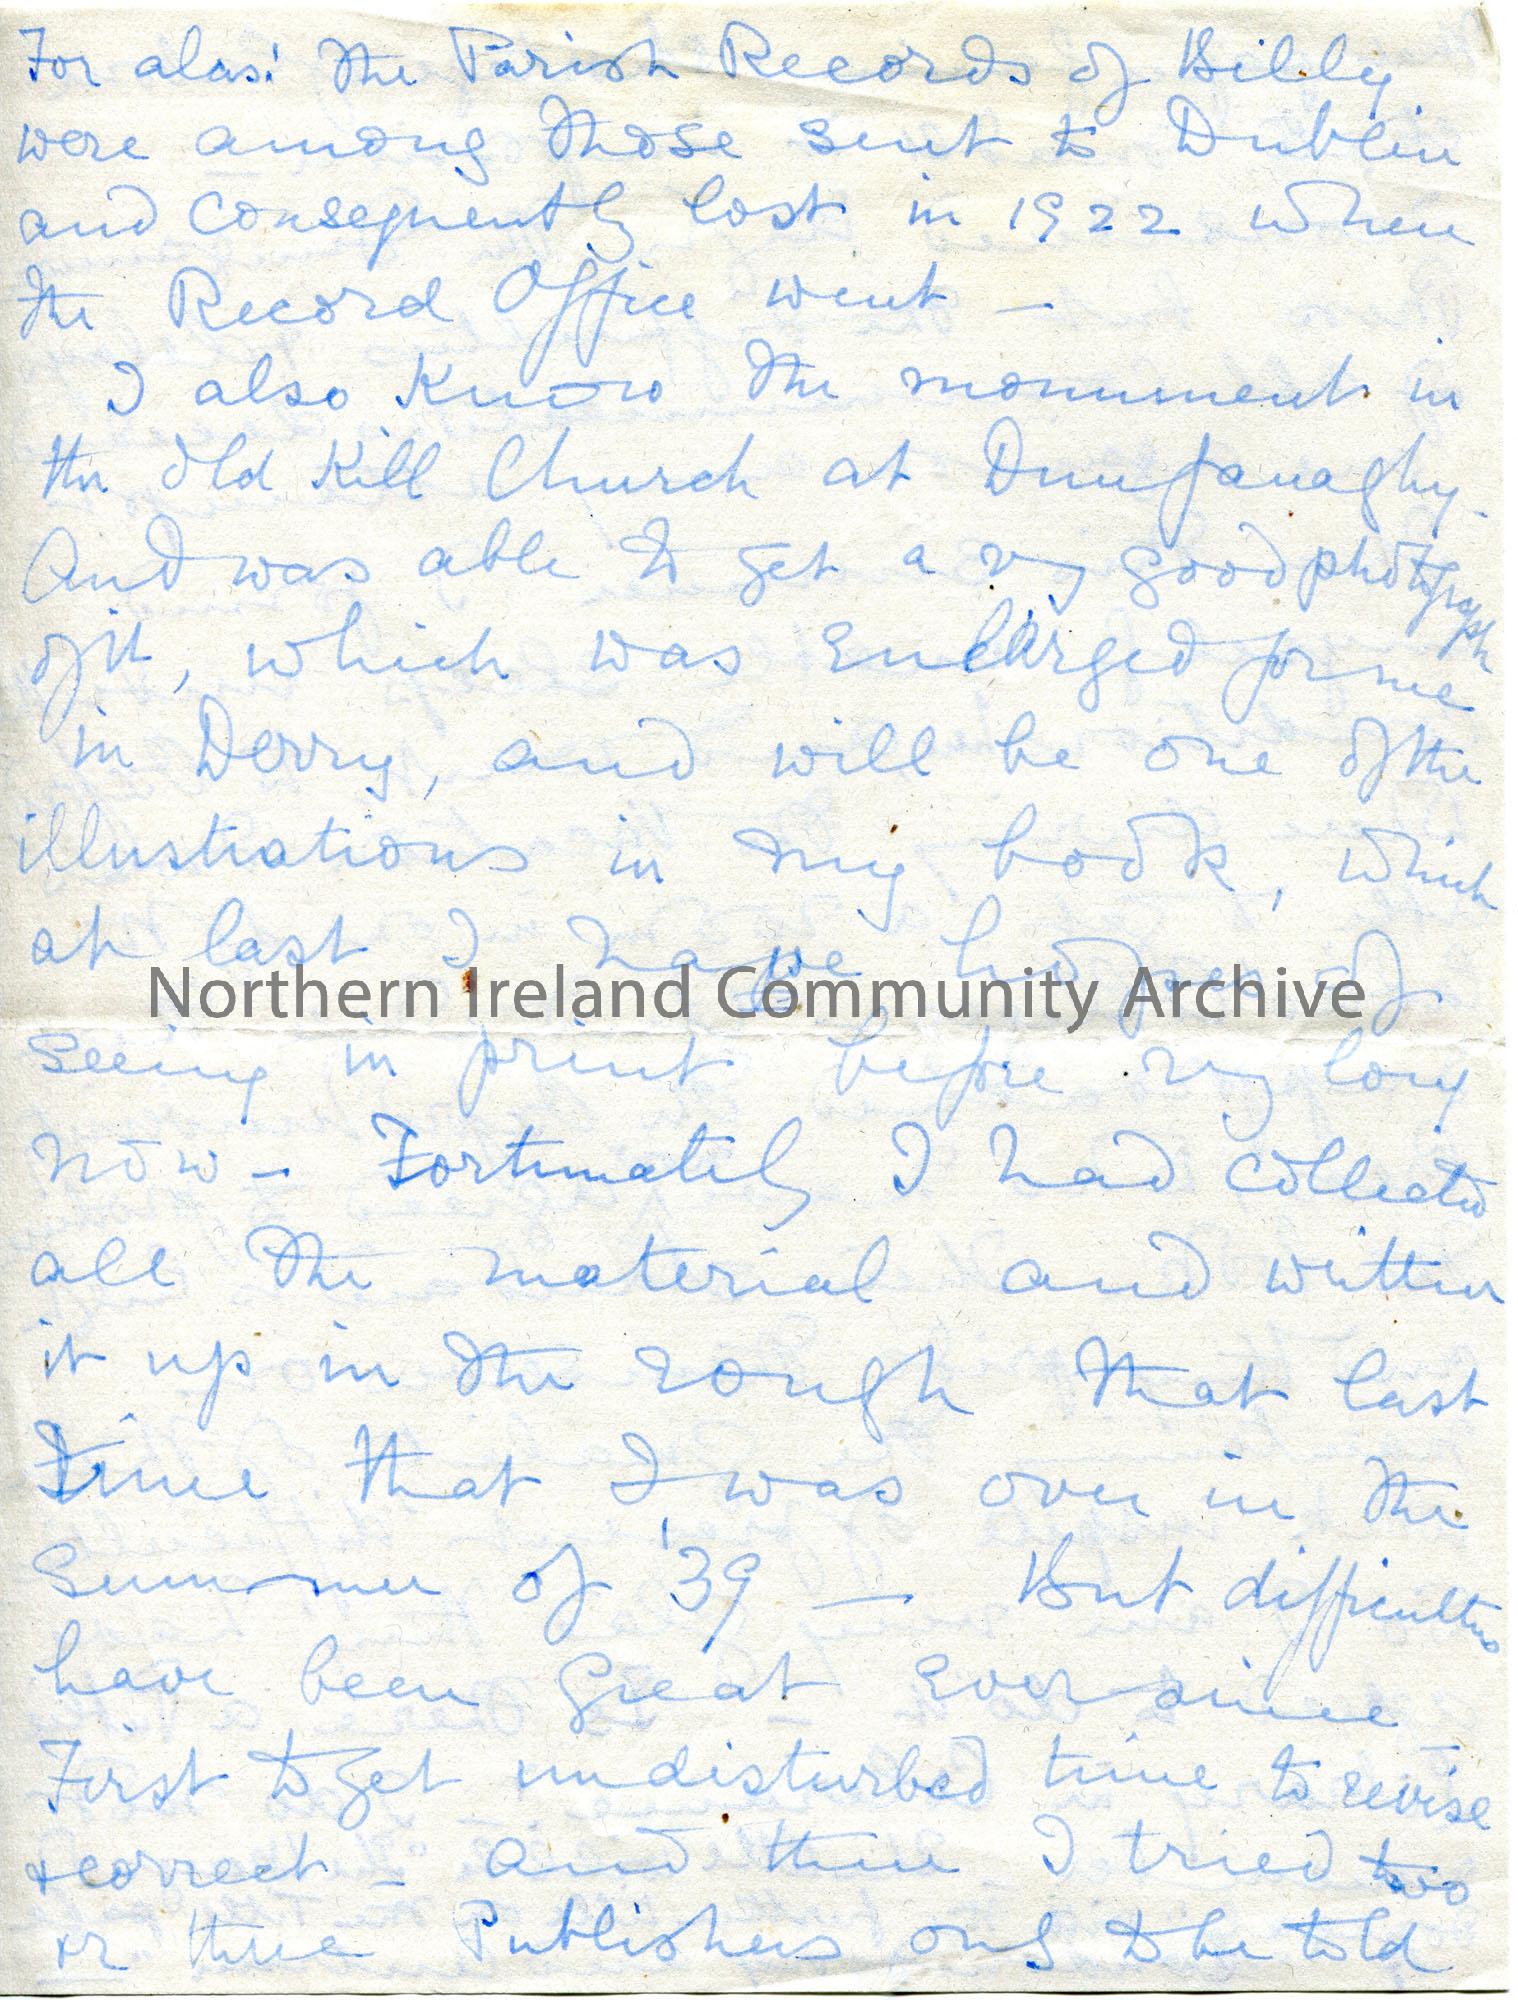 For alas! the Parish Records of Billy
were among those sent to Dublin
and consequently lost in 1922 when
the Record Office went –
I also know the monument in
the old Kill Church at Dunfanaghy.
And was able to get a vy good photograph
of it, which was enlarged for me
in Derry, and will be one of the
illustrations in my book, which
at last I have hopes of
Northern Ireland Community Archive
seeing in print before vy long
now – Fortunately I had collected
all the material and written
it up in the rough that last
time that I was over in the
Summer of '39 – But difficulties
have been great ever since
First to get undisturbed time to revise
& correct – and then I tried two
or three Publishers only to be told